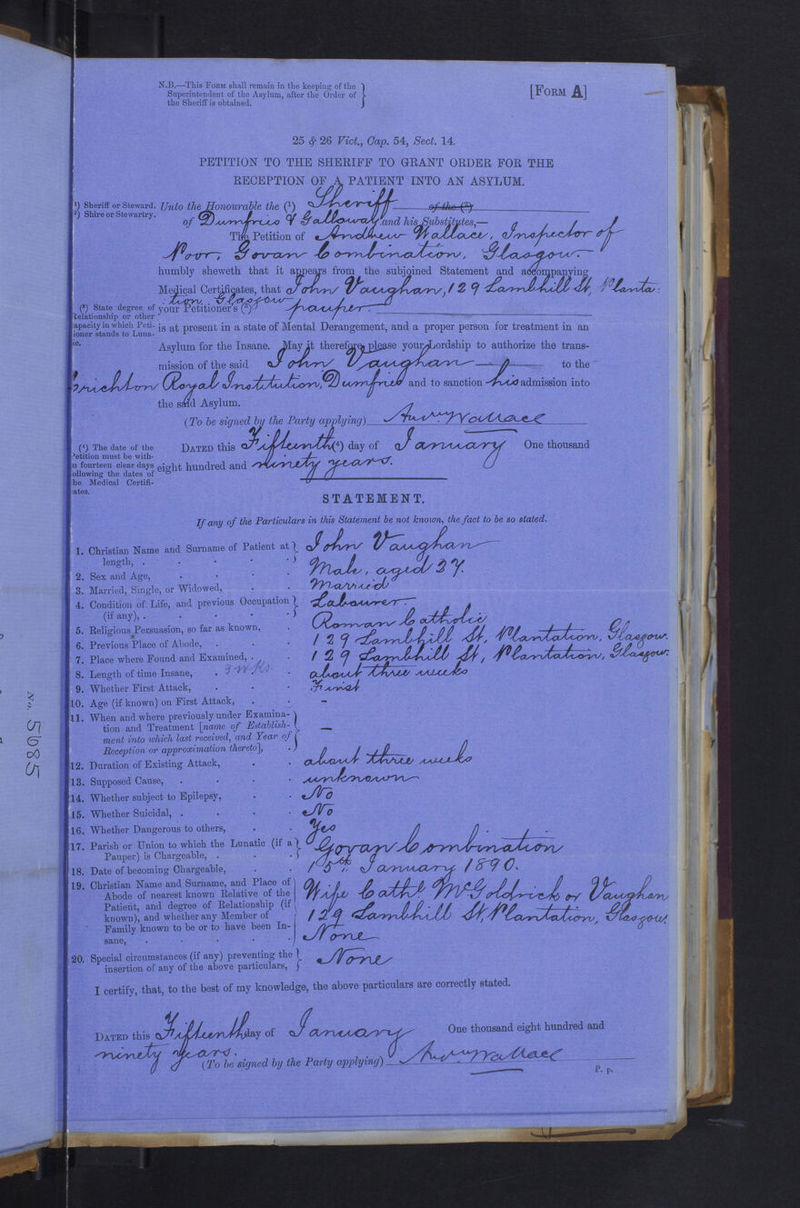 N.B.—This Form shall remain in the keeping of the
Superintendent of the Asylum, after the Order of
the Sheriff is obtained.
[Form A]
25 & 26 Vict., Cap. 54, Sect. 14.
PETITION TO THE SHERIFF TO GRANT ORDER FOR THE
RECEPTION OF A PATIENT INTO AN ASYLUM.
¹) Sheriff or Steward.
²) Shire or Stewartry.
Unto the Honourable the (¹) Sheriff of the (²)
of Dumfries & Galloway and his Substitutes,—
The Petition of Andrew Wallace, Inspector of
Poor, Govan Combination, Glasgow.
humbly sheweth that it appears from the subjoined Statement and accompanying
Medical Certificates, that John Vaughan, 129 Lambhill St, Planta:
tion, Glasgow
(³) State degree of
Relationship or other
apacity in which Peti-
ioner stands to Luna-
ic.
your Petitioner's (³) pauper.
is at present in a state of Mental Derangement, and a proper person for treatment in an
Asylum for the Insane. May it therefore please your Lordship to authorize the trans-
mission of the said John Vaughan to the
Crichton Royal Institution, Dumfries and to sanction his admission into
the said Asylum.
(To be signed by the Party applying) Andw Wallace
(⁴) The date of the
Petition must be with-
n fourteen clear days
ollowing the dates of
he Medical Certifi-
ates.
Dated this Fifteenth (⁴) day of January One thousand
eight hundred and ninety years.
STATEMENT.
If any of the Particulars in this Statement be not known, the fact to be so stated.
1. Christian Name and Surname of Patient at
length, . John Vaughan
2. Sex and Age, Male, aged 27.
3. Married, Single, or Widowed, Married
4. Condition of Life, and previous Occupation
(if any), . Labourer.
5. Religious Persuasion, so far as known, Roman Catholic
6. Previous Place of Abode, 129 Lambhill St, Plantation, Glasgow.
7. Place where Found and Examined, 129 Lambhill St, Plantation, Glasgow.
8. Length of time Insane, 3 wks about three weeks
9. Whether First Attack, First
10. Age (if known) on First Attack, -
11. When and where previously under Examina-
tion and Treatment [name of Establish-
ment into which last received, and Year of
Reception or approximation thereto], —
12. Duration of Existing Attack, about three weeks
13. Supposed Cause, unknown
14. Whether subject to Epilepsy, No
15. Whether Suicidal, No
16. Whether Dangerous to others, Yes
17. Parish or Union to which the Lunatic (if a
Pauper) is Chargeable, Govan Combination
18. Date of becoming Chargeable, 15th January 1890.
19. Christian Name and Surname, and Place of
Abode of nearest known Relative of the
Patient, and degree of Relationship (if
known), and whether any Member of
Family known to be or to have been In-
sane,
Wife Cathe McGoldrick or Vaughan
129 Lambhill St, Plantation, Glasgow.
None
20. Special circumstances (if any) preventing the
insertion of any of the above particulars, None
I certify, that, to the best of my knowledge, the above particulars are correctly stated.
Dated this Fifteenth day of January One thousand eight hundred and
ninety years.
(To be signed by the Party applying) Andw Wallace
P. p.
No. 5685